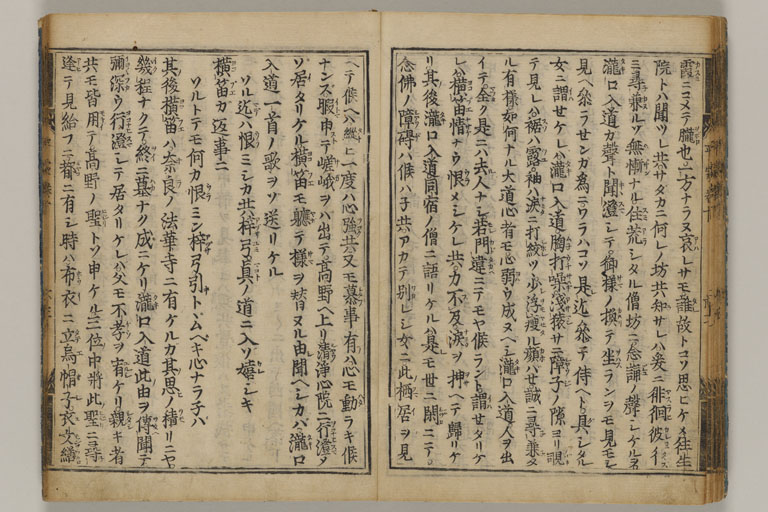 霞ニコメテ朧也一方ナラヌ哀レサモ誰故トコソ思ヒケメ往生
院トハ聞ツレ共サタカニ何レノ坊共知サレハ爰ニ徘徊彼イ
ニ尋兼ルソ無慚ナル住荒シタル僧坊ニ念誦ノ聲シケルヲ
瀧口入道カ聲ト聞澄シテ御様ノ損テ坐ランヲモ見モシ
見ヘ參ラセンカ為ニワラハコソ是迄參テ侍ヘト具シタル
女ニ謂セケレハ瀧口入道胸打噪浅猿サニ障子ノ隙ヨリ覗
テ見レハ裾ハ露袖ハ涙ニ打絞ツヽ少浮痩ル顔ハセ誠ニ尋兼タ
ル有様如何ナル大道心者モ心弱ウ成ヌヘシ瀧口入道人ヲ出
イテ全ク是ニハ去人ナシ若門違ニテモヤ候ラント謂セタリケ
レハ横笛情ナウ恨メシケレ共力不及涙ヲ押ヘテ歸リケ
リ其後瀧口入道同宿ノ僧ニ語リケルハ是モ世ニ閑ニテ
念佛ノ障碍ハ候ハ子共アカテ別レシ女ニ此栖居ヲ見
ヘテ候ヘハ縦ヒ一度ハ心強共又モ慕事有ハ心モ動ラキ候
ナンズ暇申テ嵯峨ヲハ出テ高野ヘ上リ清浄心院ニ行澄メ
ソ居タリケル横笛モ軈テ様ヲ替ヌル由聞ヘシカハ瀧口
入道一首ノ歌ヲソ送リケル
ソル迄ハ恨ミシカ共梓弓真ノ道ニ入ソ嬉シキ
横笛カ返事ニ
ソルトテモ何カ恨ミン梓弓引トヽムヘキ心ナラ子ハ
其後横笛ハ奈良ノ法華寺ニ有ケルカ其思ノ積リニヤ
幾程ナクテ終ニ墓ナク成ニケリ瀧口入道此由ヲ傳聞テ
彌深ウ行澄シテ居タリケレハ父モ不孝ヲ宥ケリ親キ者
共モ皆用テ高野ノ聖トソ申ケル三位中將此聖ニ尋
逢テ見給フニ都ニ有シ時ハ布衣ニ立烏帽子衣文繕